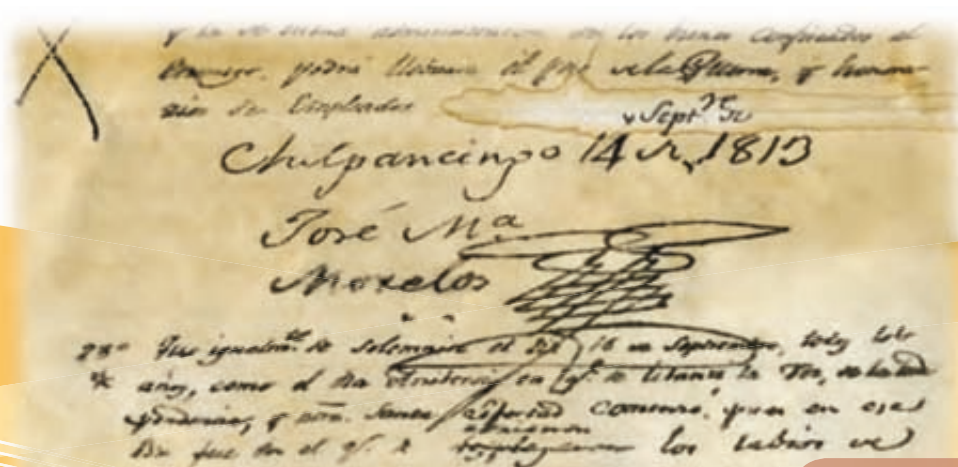 y la de buena administracion de los bienes confiscados al
Enemigo, podrá llevarse el peso de la Guerra, y honora-
rios de Empleados
Sept.e
Chilpancingo 14 de 1813
José Ma
Morelos
23o Que igualm.te se solemnice el dia 16 de Septiembre, todos los
años, como el dia en q.e se levantó la Voz, de la
y nra. Santa Libertad comenzó, pues en ese
Dia fue en el q.e se los labios de